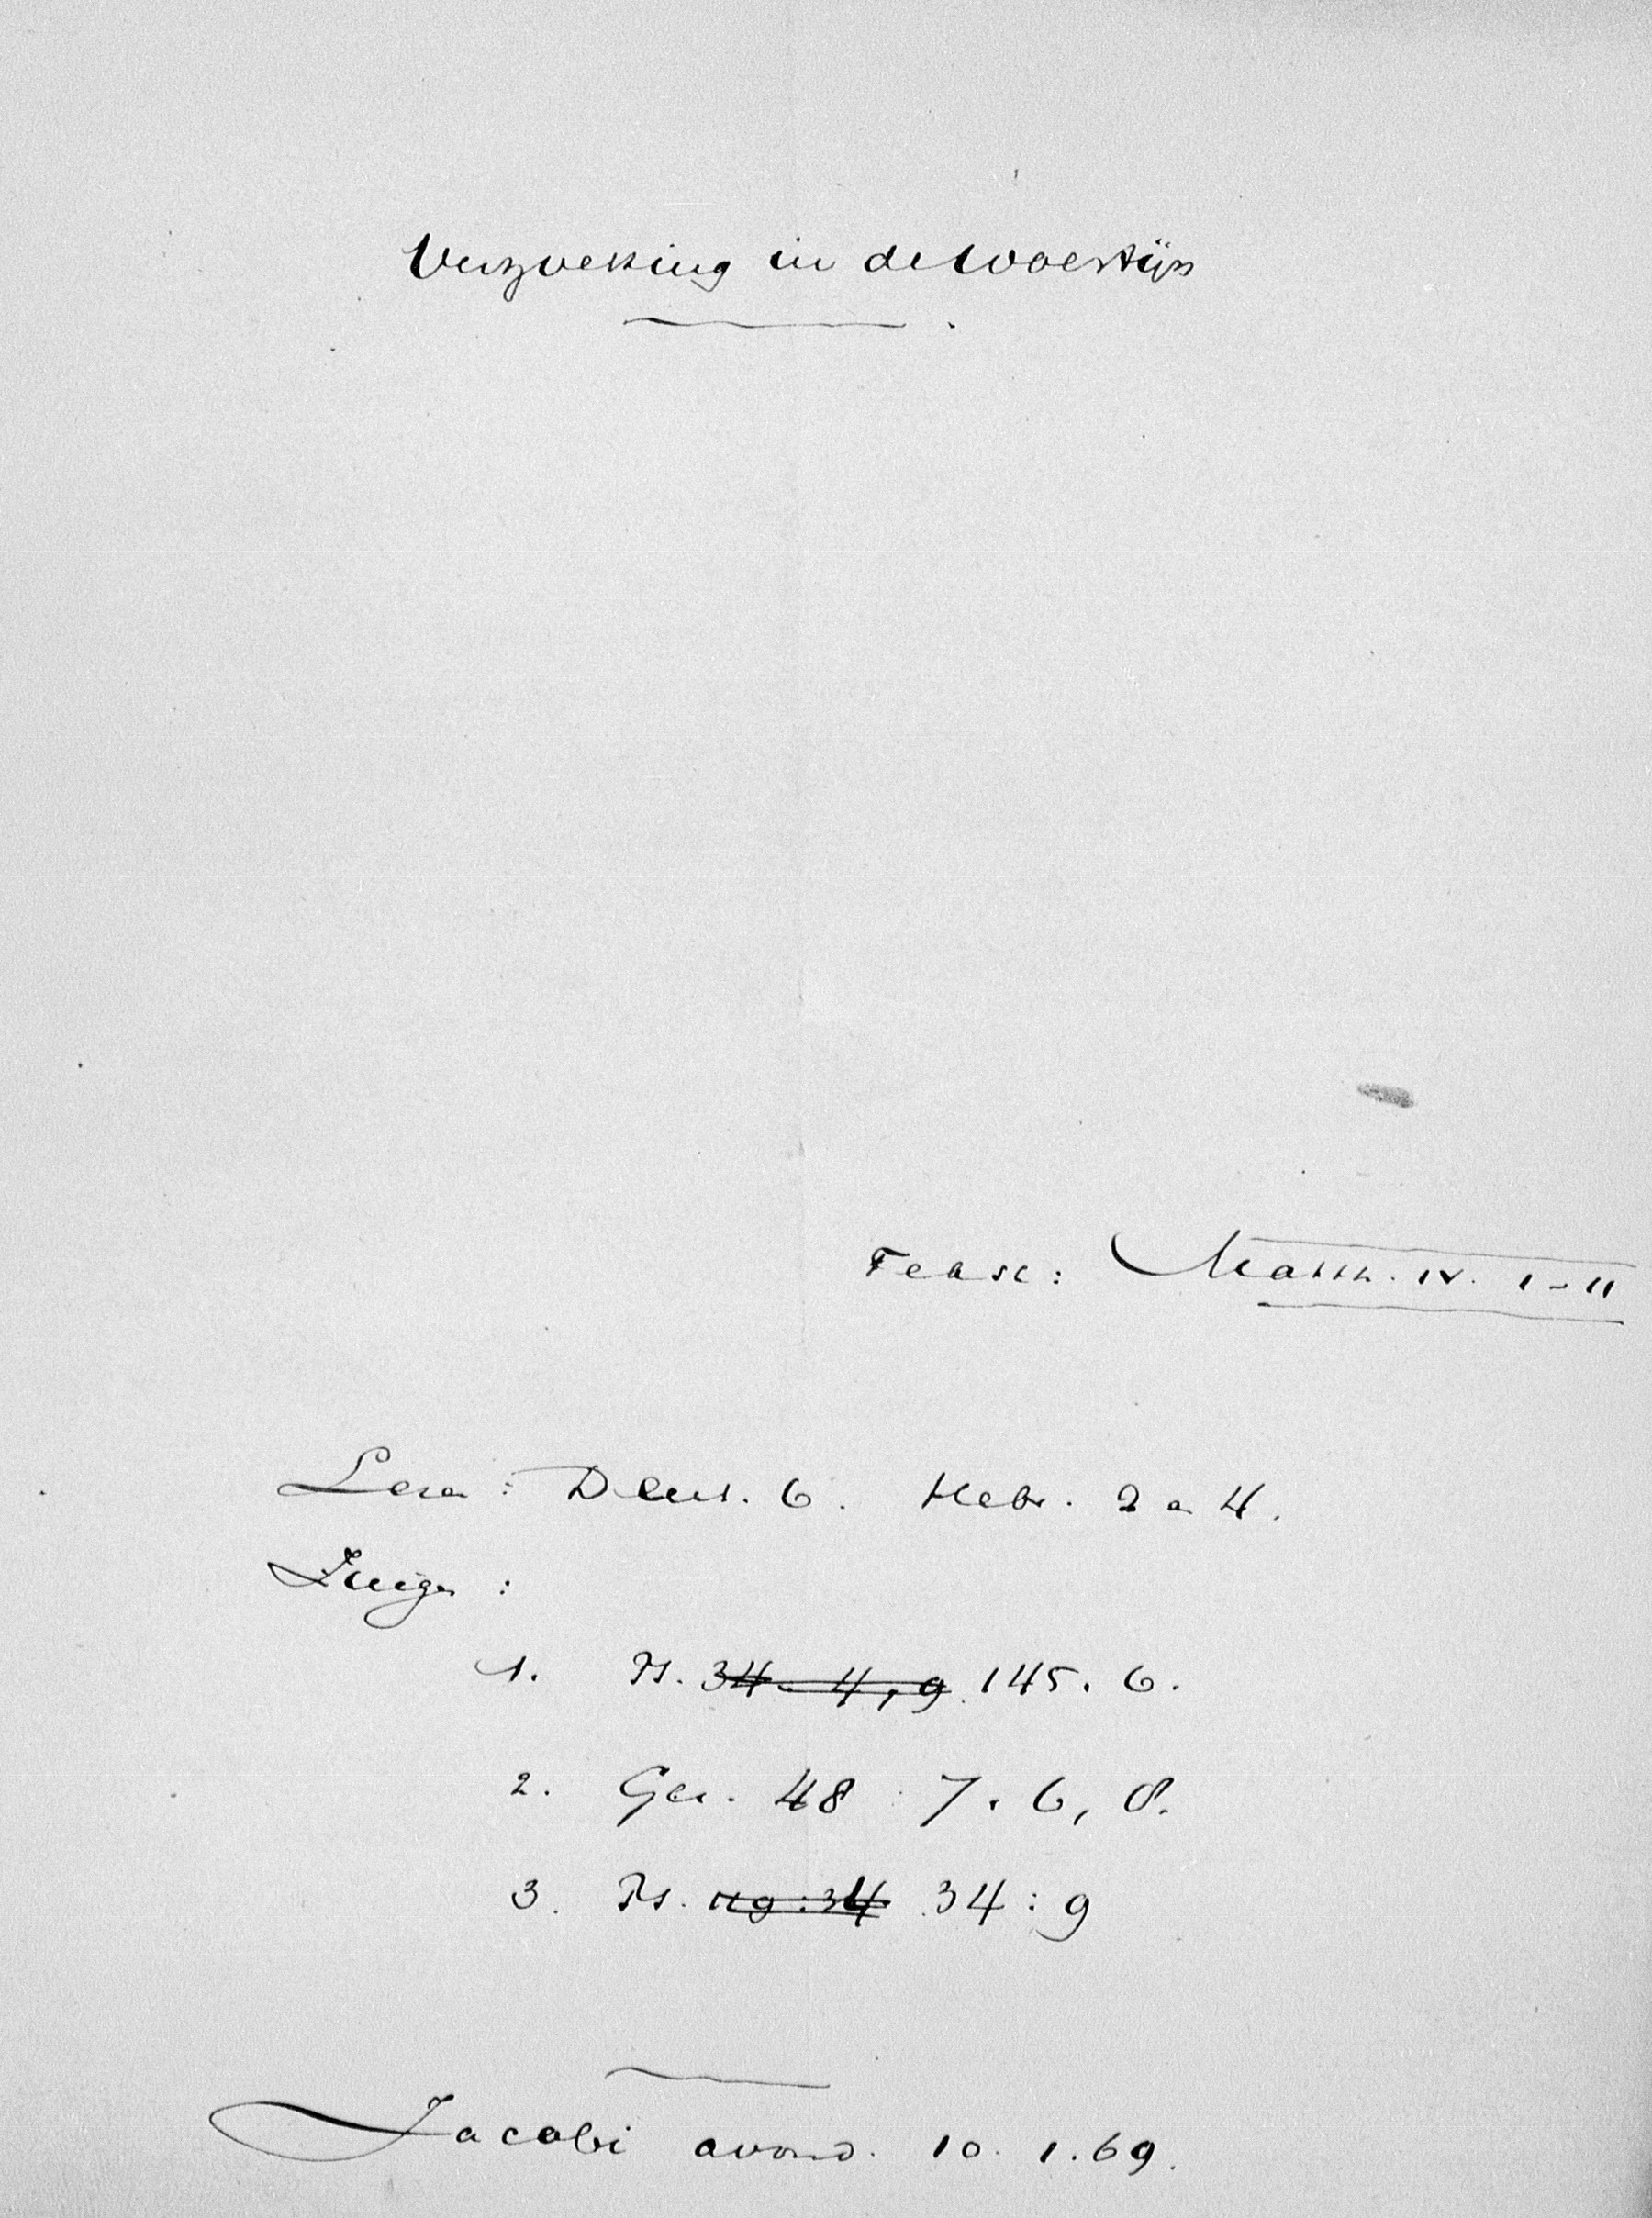 Verzoeking in de Woestijn
Tekst: Matth. IV. 1-11
Lezen: Deut. 6. Hebr. 2 en 4.
Zingen:
1. Ps. 34. 4, 9 145. 6.
2. Gez. 48 : 7. 6, 8.
3. Ps. 119:34 34:9
Jacobi avond. 10. 1. 69.